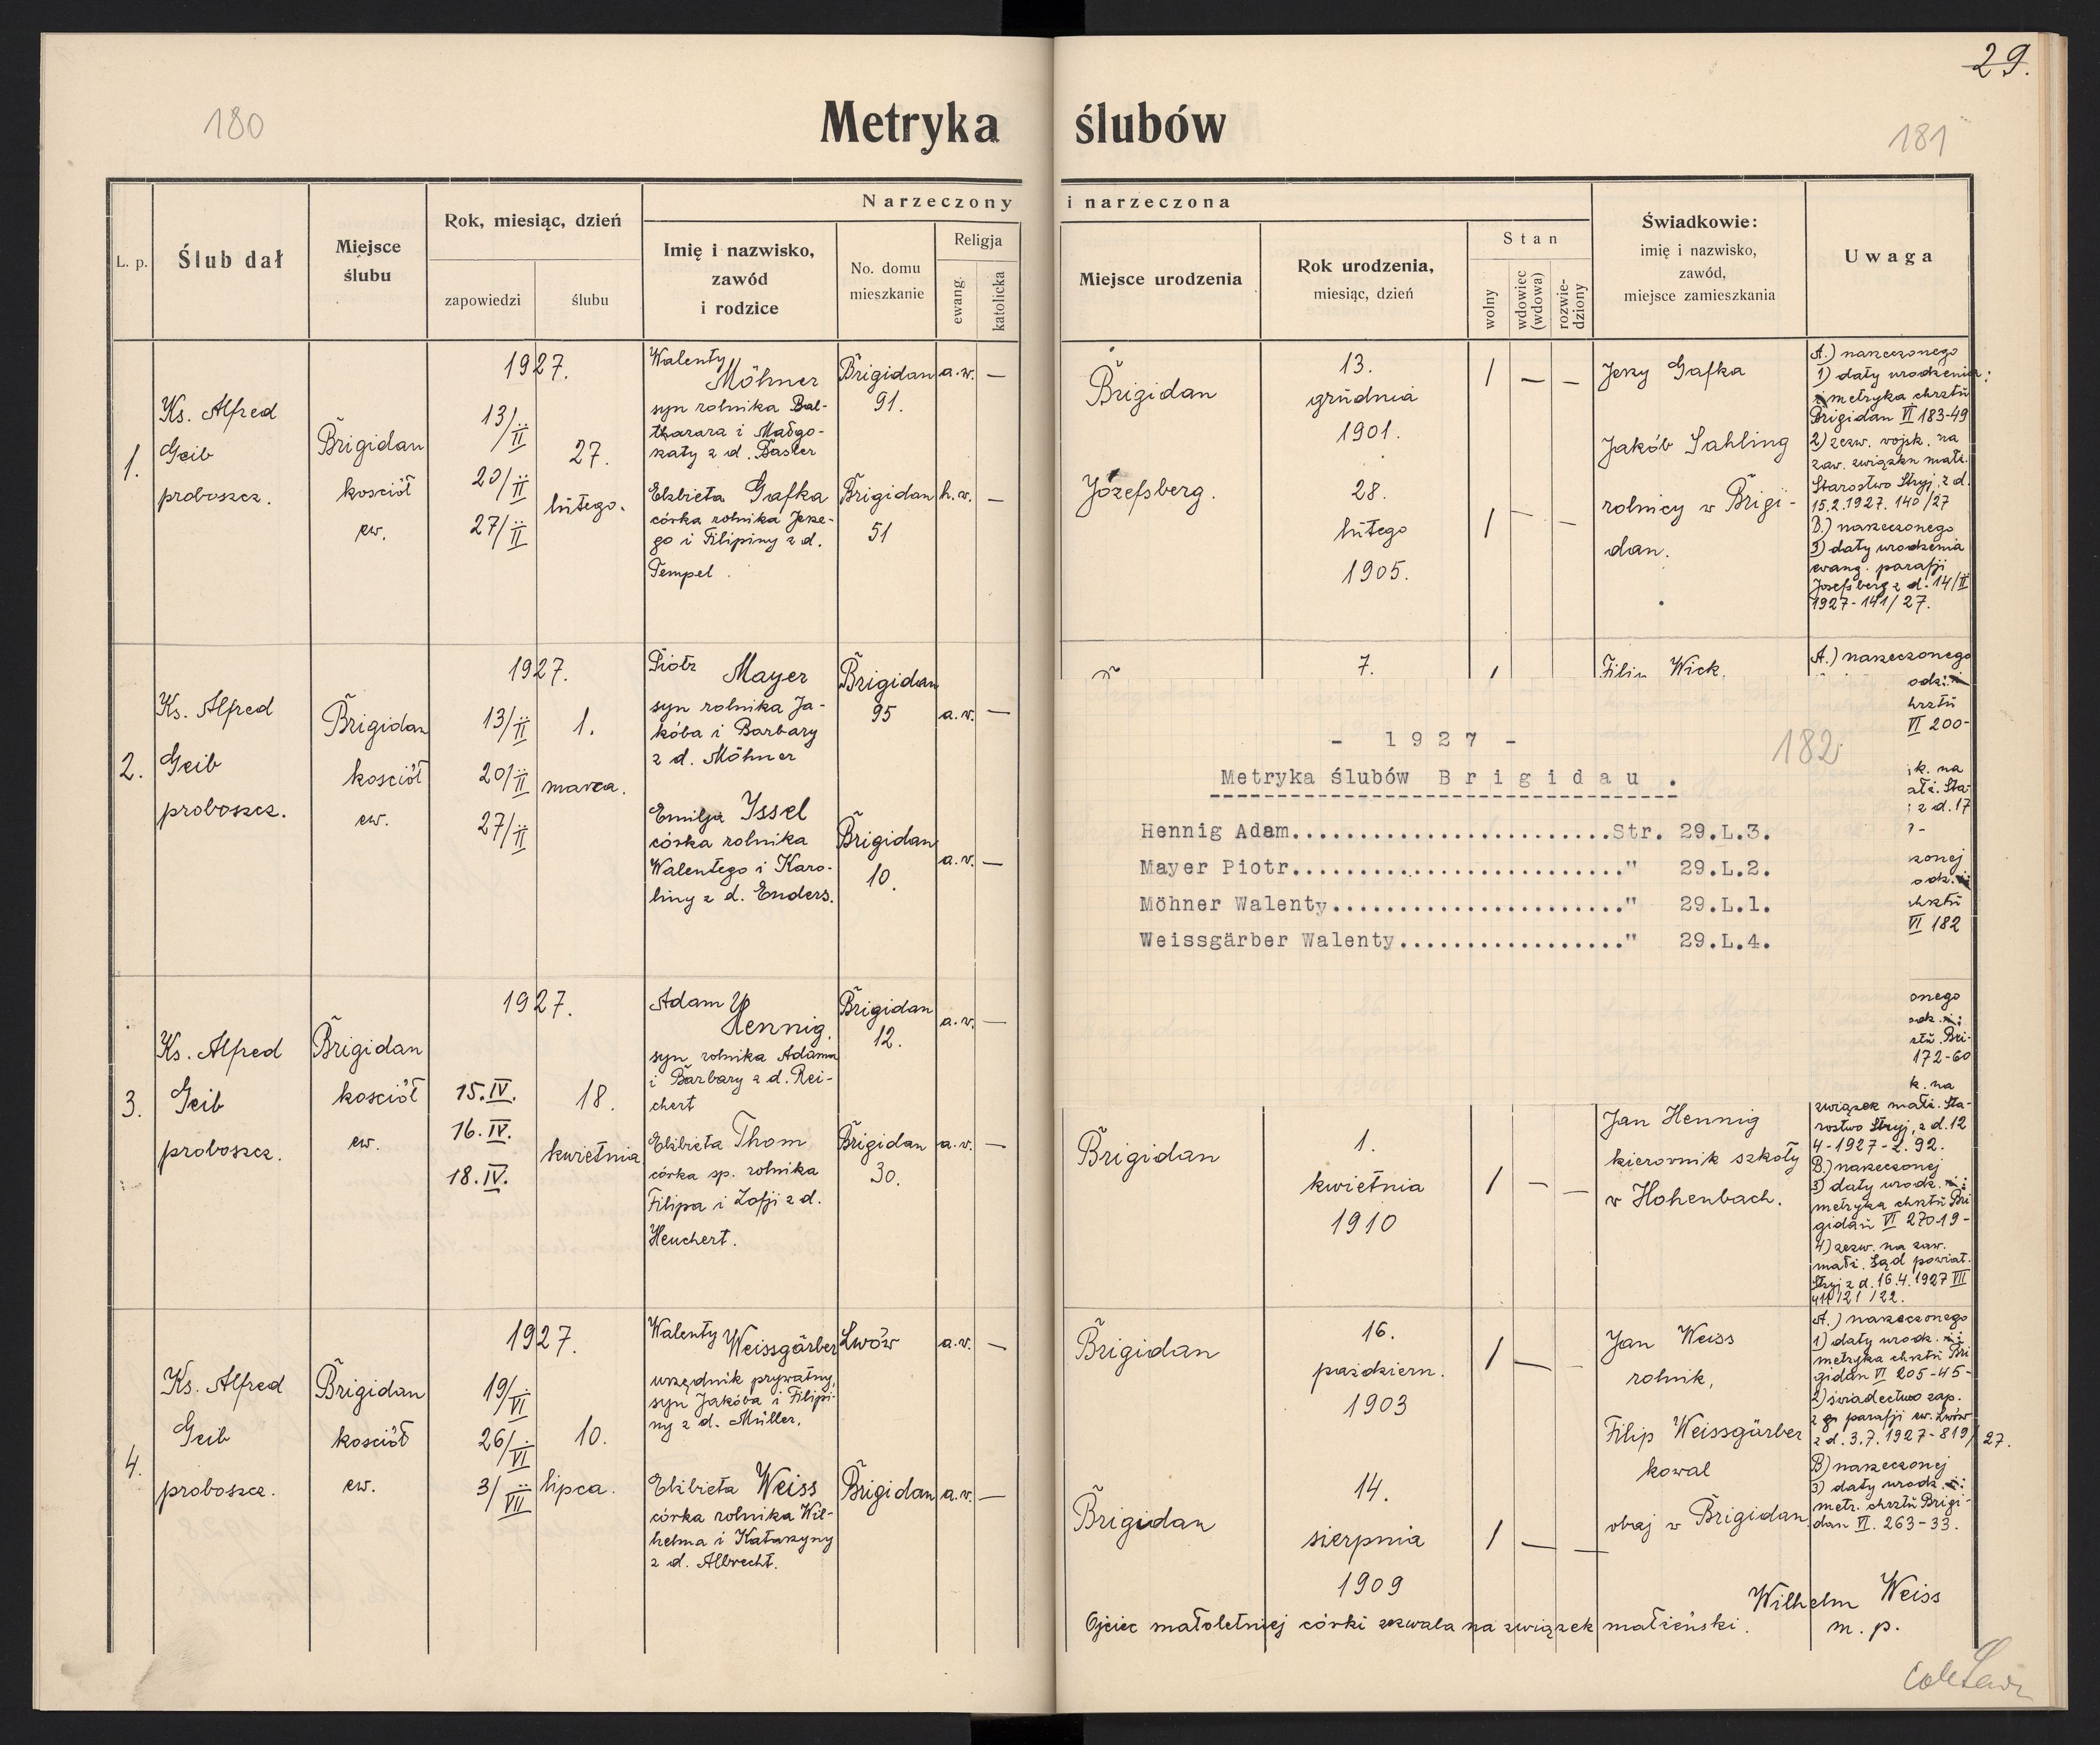 29.
180
181
Metryka ślubów
L. p.
Ślub dał
Miejsce
ślubu
Rok, miesiąc, dzień
zapowiedzi
ślubu
Narzeczony i narzeczona
Imię i nazwisko,
zawód
i rodzice
No. domu
mieszkanie
Religja
ewang.
katolicka
Miejsce urodzenia
Rok urodzenia,
miesiąc, dzień
Stan
wolny
wdowiec
(wdowa)
rozwie-
dziony
Świadkowie:
imię i nazwisko,
zawód,
miejsce zamieszkania
Uwaga
1.
Ks. Alfred
Geib
proboszcz.
Brigidau
kościół
ew.
1927.
13/II
20/II
27/II
27.
lutego.
Walenty
Möhner
syn rolnika Bal-
tharara i Małgo-
rzaty z d. Basler
Brigidau
91.
a.w. —
Elżbieta Gafka
córka rolnika Jerze-
go i Filipiny z d.
Tempel.
Brigidau
51
h.w. —
Brigidau
13.
grudnia
1901.
1 — —
Józefsberg.
28.
lutego
1905.
1 — —
Jerzy Gafka
Jakób Sahling
rolnicy w Brigi-
dau.
A.) narzeczonego
1) daty urodzenia:
metryka chrztu
Brigidau VI 183-49
2) zezw. wojsk. na
zaw. związku małż.
Starostwo Stryj, z d.
15.2.1927. 140/27
B.) narzeczonego
3) daty urodzenia
ewang. parafji
Josefsberg z d. 14/II
1927-141/27.
2.
Ks. Alfred
Geib
proboszcz.
Brigidau
kościół
ew.
1927.
13/II
20/II
27/II
1.
marca.
Piotr Mayer
syn rolnika Ja-
kóba i Barbary
z d. Möhner
Brigidau
95
a.w. —
Emilja Issel
córka rolnika
Walentego i Karo-
liny z d. Enders.
Brigidau
10.
a.w. —
7.
Filip Wick.
A.) narzeczonego
odz:
hrztu
VI 200-
k. na
ałż. Sta-
z d. 17
zonej
odz.
chrztu
VI 182
- 1927 -
182
Metryka ślubów Brigidau .
Hennig Adam........................Str. 29.L.3.
Mayer Piotr........................." 29.L.2.
Möhner Walenty......................" 29.L.1.
Weissgärber Walenty................." 29.L.4.
3.
Ks. Alfred
Geib
proboszcz.
Brigidau
kościół
ew.
1927.
15.IV.
16.IV.
18.IV.
18.
kwietnia
Adam
Hennig,
syn rolnika Adama
i Barbary z d. Rei-
chert
Brigidau
12.
a.w. —
Elżbieta Thom
córka sp. rolnika
Filipa i Zofji z d.
Heuchert.
Brigidau
30.
a.w. —
Brigidau
1.
kwietnia
1910
1 — —
Jan Hennig
kierownik szkoły
w Hohenbach.
onego
odz.
ztu Bri-
172-60
k. na
związek małż. Sta-
rostwo Stryj, z d. 12
4-1927-L.92.
B.) narzeczonej
3) daty urodz.:
metryka chrztu Bri
gidau VI 270-19-
4) zezw. na zaw.
małż. Sąd powiat.
Stryj z d. 16.4.1927 VII
/21/22.
4.
Ks. Alfred
Geib
proboszcz.
Brigidau
kościół
ew.
1927.
19/VI
26/VI
3/VII
10.
lipca.
Walenty
Weissgärber
urzędnik prywatny,
syn Jakóba i Filipi-
ny z d. Müller.
Lwów
a.w. —
Elżbieta Weiss
córka rolnika Wil-
helma i Katarzyny
z d. Albrecht.
Brigidau
a.w. —
Brigidau
16.
październ.
1903
1 — —
Brigidau
14.
sierpnia
1909
1 — —
Jan Weiss
rolnik,
Filip Weissgärber
kowal
obaj w Brigidau.
A.) narzeczonego
1) daty urodz.:
metryka chrztu Bri
gidau VI 205-45-
2) świadectwo zap.
z parafji ew. Lwów
z d. 3.7.1927-819/27.
B) narzeczonej
3) daty urodz.:
metr. chrztu Brigi-
dau VI. 263-33.
Ojciec małoletniej córki zezwala na związek małżeński.
Wilhelm Weiss
m. p.